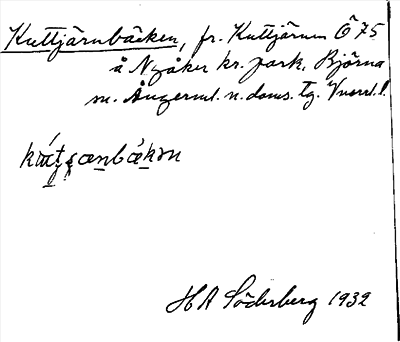 Kuttjärnbäcken, fr. Kuttjärnen Ö 75
å Nyåker kr. park, Björna
sn. Ångerml. n. doms. tg. Vnorrl. l.
HA Söderberg 1932